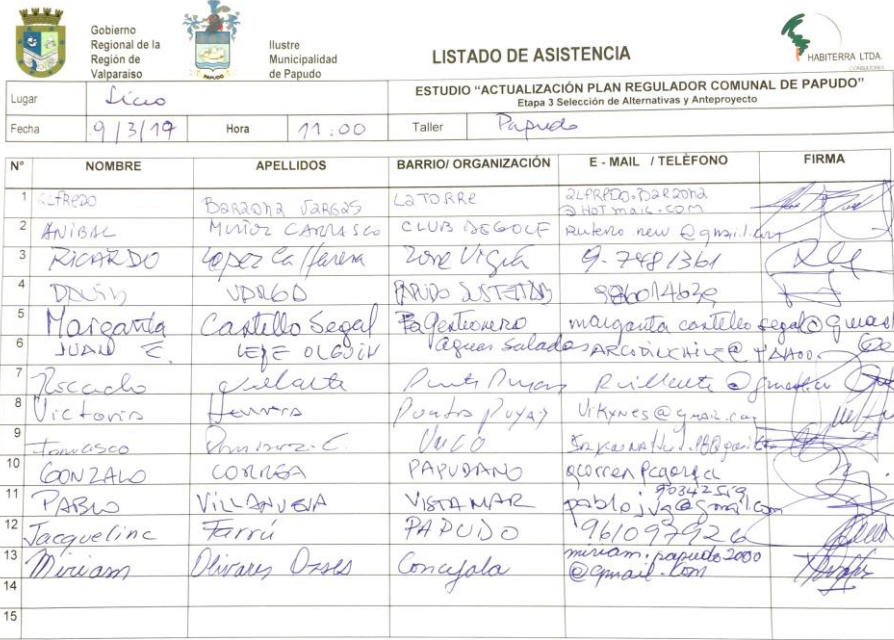 Gobierno
Regional de la
Región de
Valparaiso
Ilustre
Municipalidad
de Papudo
PAPUDO
LISTADO DE ASISTENCIA
HABITERRA LTDA.
CONSULTORES
Lugar Liceo
ESTUDIO “ACTUALIZACIÓN PLAN REGULADOR COMUNAL DE PAPUDO”
Etapa 3 Selección de Alternativas y Anteproyecto
Fecha 9/3/19 Hora 11:00 Taller Papudo
N° NOMBRE APELLIDOS BARRIO/ ORGANIZACIÓN E - MAIL / TELÈFONO FIRMA
1 ALFREDO BARZONA VARGAS LA TORRE ALFREDO.BARZONA
@HOTMAIL.COM
2 ANIBAL MUÑOZ CARRASCO CLUB DE GOLF new @gmail.com
3 RICARDO Lopez Zone Vigia 9-7481361
4 PAPUDO
5 Margarita Castello Segal margarita castello segal@gmail
6 JUAN E. LEPE OLGUIN Aguas Saladas @YAHOO.
7 Punta Puyay
8 Victoria Herrera Punta Puyay Vikynes@gmail.com
9 Francisco Ramirez C.
10 GONZALO CORREA PAPUDANO
11 PABLO VILLANUEVA VISTAMAR 90342519
pablojva@gmail.com
12 Jacqueline Farrú PAPUDO 961097926
13 Miriam Olivares Osses Concejala miriam.papudo2000
@gmail.com
14
15